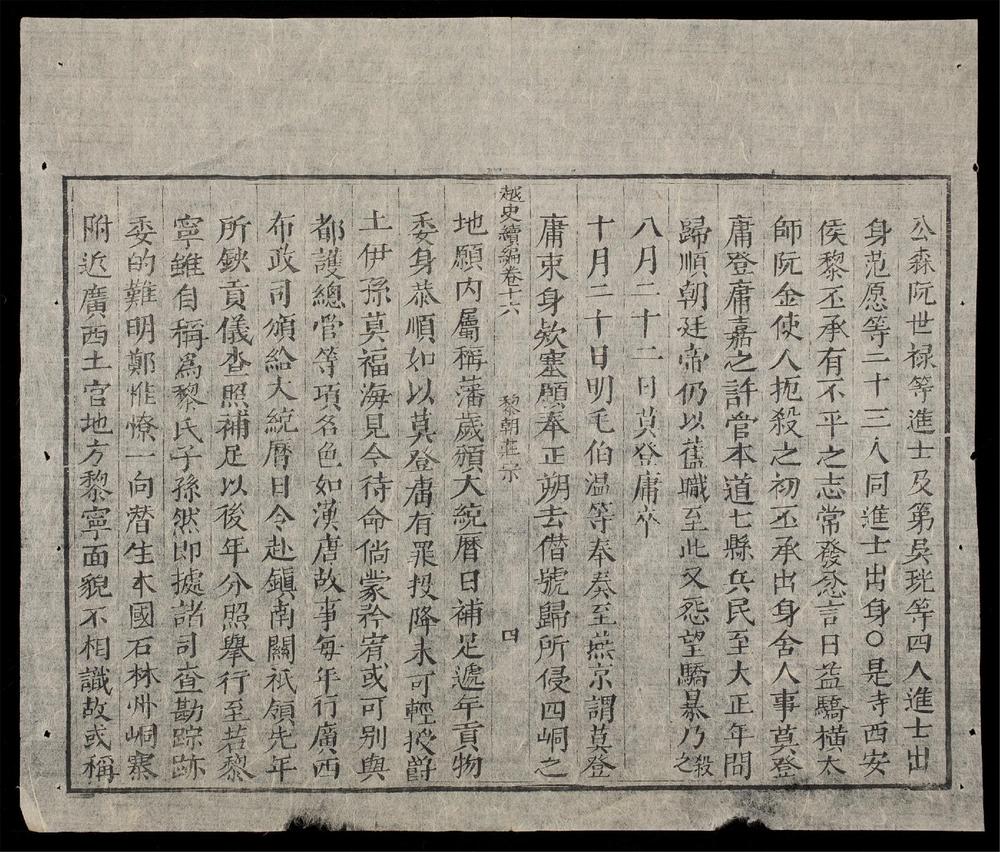 公森阮世禄等進士及第吳珖等四人進士出
身范愿等二十三人同進士出身○是寺西安
侯黎丕承有不平之志常發忿言日益驕橫太
師阮金使人扼殺之初丕承出身舍人事莫登
庸登庸嘉之許管本道七縣兵民至大正年間
歸順朝廷帝仍以舊職至此又怨望驕暴乃殺之
八月二十二日莫登庸卒
十月二十日明毛伯温等奉奏至燕京謂莫登
庸束身欵塞願奉正朔去僣號歸所侵四峒之
越史續編卷十六 黎朝莊宗 四
地願内屬稱藩歲頒大統曆日補足遞年貢物
委身恭順如以莫登庸有罪投降未可輕授爵
土伊孫莫福海見今待命倘蒙矜宥或可别與
都護總管等項名色如漢唐故事每年行廣西
布政司頒給大統曆日令赴鎮南關祇領先年
所鈌貢儀查照補足以後年分照舉行至若黎
寧雖自稱為黎氏子孫然即據諸司查勘踪跡
委的難明鄭惟憭一向潜生本國石林州峒寨
附近廣西土官地方黎寧面貌不相識故或稱